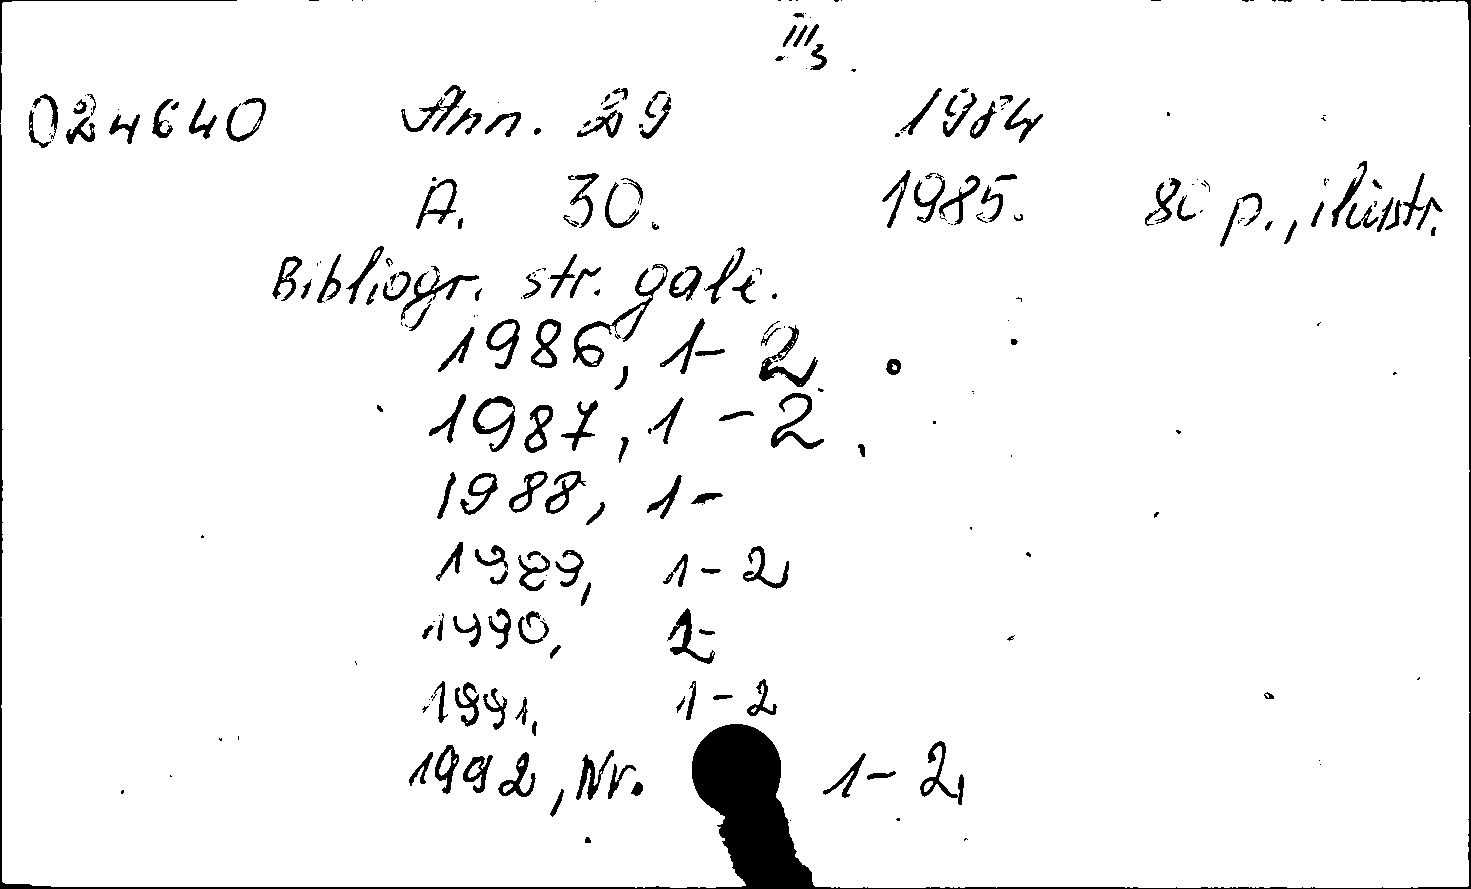 III3.
024640 Ann. 29 1984
A. 30. 1985. 80 p., iliustr.
Bibliogr. str. gale.
1986, 1-2.
1987, 1-2.
1988, 1-
1989, 1-2
1990,
1991, 1-2
1992, Nr. 1-2,